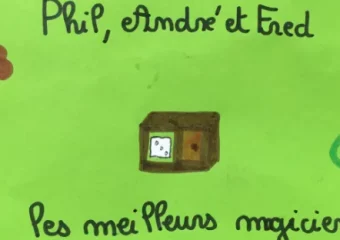 Phil, André et Fred
les meilleurs magicien